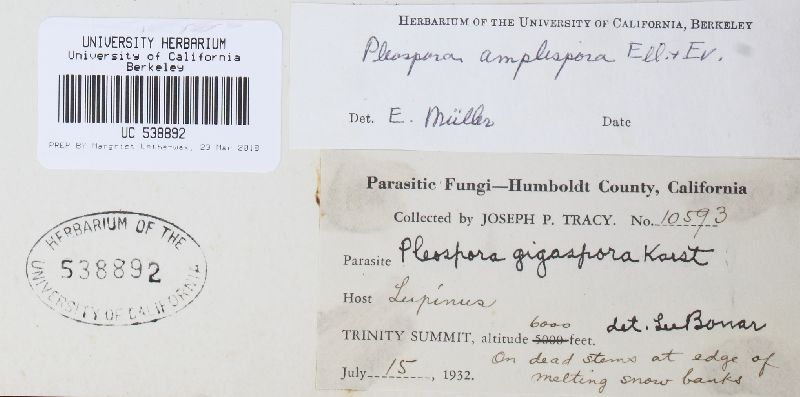 UNIVERSITY HERBARIUM
University of California
Berkeley
UC 538892
PREP BY Margriet 23 Mar 2018
HERBARIUM OF THE UNIVERSITY OF CALIFORNIA, BERKELEY
Pleospora amplispora Ell. + Ev.
Det. E. Müller Date
HERBARIUM OF THE
538892
UNIVERSITY OF CALIFORNIA
Parasitic Fungi—Humboldt County, California
Collected by JOSEPH P. TRACY. No. 10593
Parasite Pleospora gigaspora Karst
Host Lupinus
6000 det. Lee Bonar
TRINITY SUMMIT, altitude 5000 feet.
On dead stems at edge of
July 15, 1932. melting snow banks